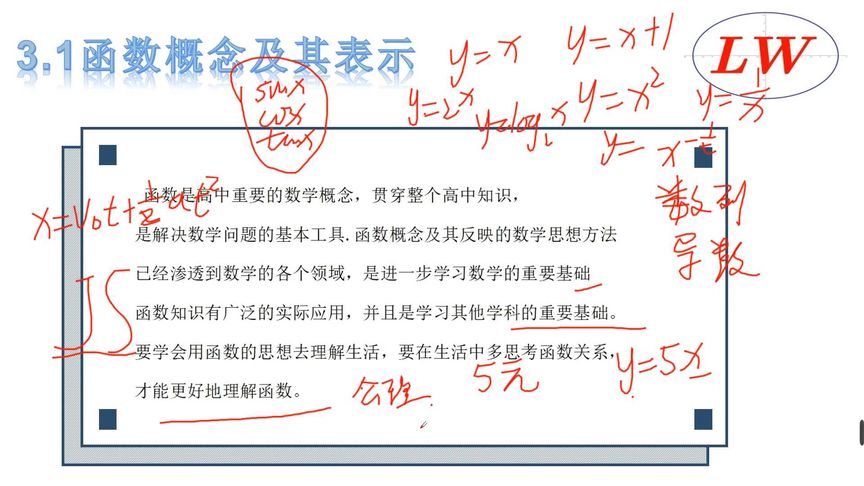 3.1函数概念及其表示
LW
y=x
y=x+1
sinx
cosx
tanx
y=2^x
y=x²
y=1/x
函数是高中重要的数学概念，贯穿整个高中知识，
x=V₀t+½at²
数列
是解决数学问题的基本工具.函数概念及其反映的数学思想方法
导数
已经渗透到数学的各个领域，是进一步学习数学的重要基础
函数知识有广泛的实际应用，并且是学习其他学科的重要基础。
要学会用函数的思想去理解生活，要在生活中多思考函数关系，
5元
y=5x
才能更好地理解函数。